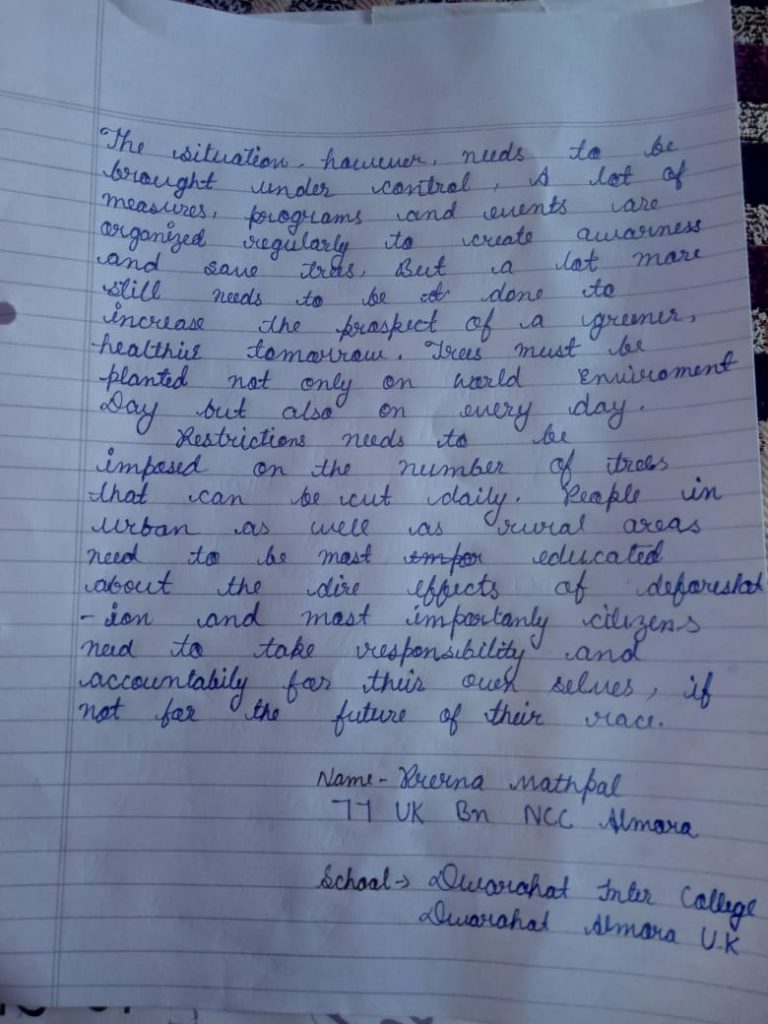 The situation, however, needs to be
brought under control, A lot of
measures, programs and events are
organized regularly to create awarness
and save trees, But a lot more
still needs to be done to
increase the prospect of a greener,
healthier tomorrow. Trees must be
planted not only on world Enviroment
Day but also on every day.
Restrictions needs to be
imposed on the number of trees
that can be cut daily. People in
urban as well as rural areas
need to be most educated
about the dire effects of deforestat
-ion and most importanly citizens
need to take responsibility and
accountabily for their own selves, if
not for the future of their race.
Name- Prerna Mathpal
77 UK Bn NCC Almora
School→ Dwarahat Inter College
Dwarahat Almora U.K